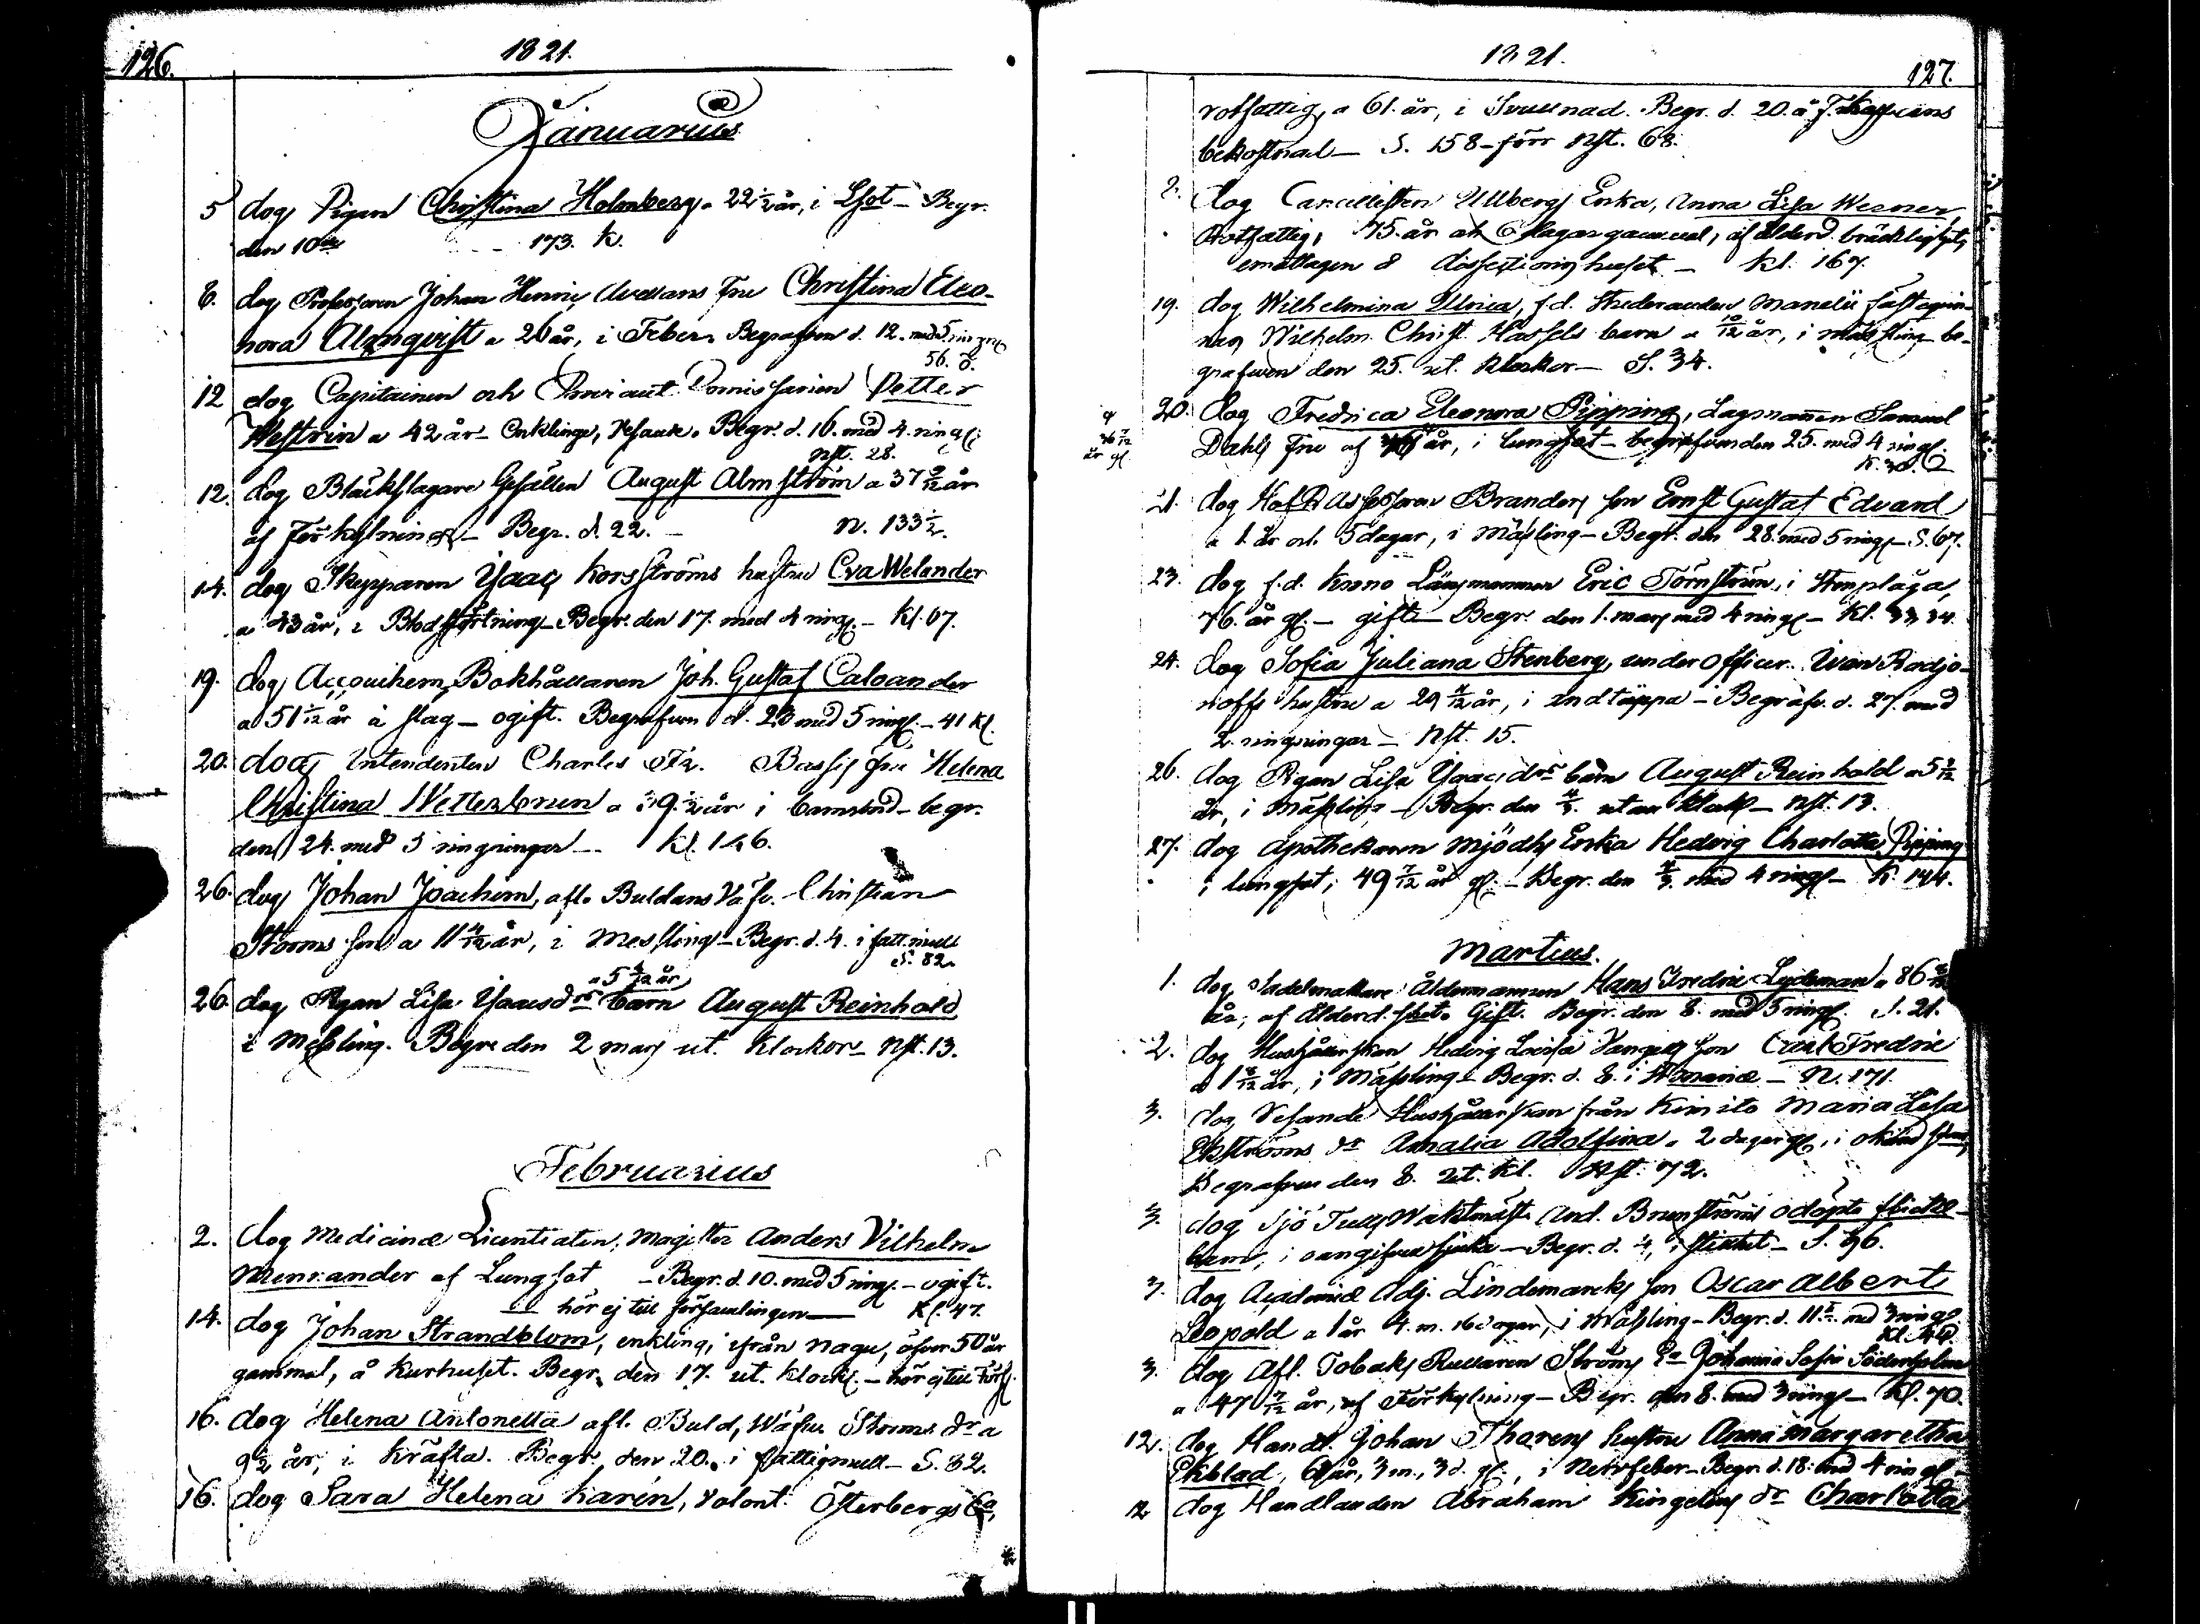 126.
1821.
Januarius
5 dog Pigan Christina Holmberg a 22 1/2 år, i Lsot - Begr.
den 10de 173. K.
6. dog Professoren Johan Henric Avellans Fru Christina Eleo-
nora Almqvist a 26 år, i Feber. Begrafven d. 12. med 5 ringn
56. S.
12 dog Capitainen och Proviant Comissarien Petter
Westrin a 42 år - Enkling, Begr. d. 16. med 4 ringn:
Nst. 28.
12. dog Bläckslagare Gesällen August Almström a 37 år
af Förkylning - Begr. d. 22. - N. 133 1/2.
14. dog Skepparen Isaac Korsströms hustru Eva Welander
a 43 år, i Blodstörtning - Begr. den 17. med 4 ring. - Kl. 67.
19. dog Bokhållaren Joh. Gustaf Caloander
a 51 år å slag - ogift. Begrafven d. 23 med 5 ring. - 41 Kl.
20. dog Intendenten Charles Bassis fru Helena
Christina Wetterbrun a i barnsbörd - begr.
den 24. med 5 ringningar - Kl. 146.
26. dog Johan Joachim, afl. Buldans Väfv. Christian
Storms son a 11 år, i Messling - Begr. d. 4. i fatt.mull
S. 82.
a 5 4/12 år
26 dog Pigan Lisa Isaacsdrs barn August Reinhold
i Messling. Begr. den 2 mars ut. Klockor - Nst. 13.
Februarius
2. dog Medicinæ Licentiaten, Magister Anders Vilhelm
Mennander af Lungsot - Begr. d. 10. med 5 ring. - ogift.
hör ej till församlingen - Kl. 47.
14. dog Johan Strandblom, enkling, ifrån Nagu, öfver 50 år
gammal, å Kurhuset. Begr. den 17. ut. klock. - hör ej till förs.
16. dog Helena Antonetta afl. Buld, Wäfv. Storms dr a
9 1/2 år, i Kräfta. Begr. den 20. i fattigmull - S. 82.
16. dog Sara Helena Karén, Volont. Österbergs Ea,
1821.
127.
rotfattig, a 61. år, i Svullnad. Begr. d. 20. å
bekostnad - S. 158 - förr Nst. 68.
2. dog Cancellisten Ullbergs Enka, Anna Lisa Wesner,
Rotfattig, 75. år gammal, af ålderd. bräcklighet,
emottagen å dissectionshuset - Kl. 167.
19. dog Wilhelmina Ulrica, f.d. Studeranden Manelii fästeqvin-
nas Wilhelm. Christ. Hassels barn a 10/12 år, i mässling be-
grafven den 25. ut. klockor - S. 34.
20. dog Fredrica Eleonora Pipping, Lagmannen Samuel
Dahls Fru af år, i lungsot - begrafven den 25. med 4 ringn.
21. dog HofR. Assessoren Branders son Ernst Gustaf Edvard
a 1 år och 5 dagar, i Mässling - Begr. den 28. med 5 ring. - S. 67.
23. dog f.d. Krono Länsmannen Eric Törnström, i Stenplåga,
76. år gl. - gift - Begr. den 1. mars med 4 ring. - Kl. 34.
24. dog Sofia Juliana Stenberg, underofficer. Ivan Radjo-
noffs hustru a 29 år, i Andtäppa - Begrafv. d. 27. med
2. ringningar - Nst. 15.
26. dog Pigan Lisa Isaacsdrs barn August Reinhold a 5
år, i Mässling - Begr. den 2/3. utan klock. - Nst. 13.
27. dog Apothekaren Mjödhs Enka Hedvig Charlotta Pipping
i lungsot, 49 7/12 år gl. - Begr. den 4/3. med 4 ring. - K. 144.
Martius.
1. dog Sadelmakare Åldermannen Hans Fredric Lydeman a 86
år, af Ålderd. Gift. Begr. den 8. med 5 ring. S. 21.
2. dog Hushållerskan Hedvig Lovisa son Carl Fredric
a 1 8/12 år, i Mässling - Begr. d. 8. i - N. 171.
3. dog Resande Hushållerskan från Kimito Maria Lisa
Ekströms dr Amalia Adolfina a 2 dagar gl., i okänd
Begrafven den 8. ut. Kl. Nst. 72.
3. dog Sjö Tulls Waktmäst. And. Brunströms odöpte
barn, i oangifven sjuka - Begr. d. 4, i - S. 96.
3. dog Academiæ Adj. Lindemarcks son Oscar Albert
Leopold a 1 år 4. m. 16 dagar, i Mässling - Begr. d. 11. med 3 ring.
3. dog Afl. Tobaks Rullaren Ströms Ea Johanna Sofia Söderholm
a 47 7/12 år, af Förkylning - Begr. den 8. med 3 ring. - Kl. 70.
12. dog Handl. Johan Thorens hustru Anna Margaretha
Ekblad, år, 3 m., 3 d. gl., i Nervfeber - Begr. d. 18. med 4 ring.
12 dog Handlanden Abraham Kingelins dr Charlotta